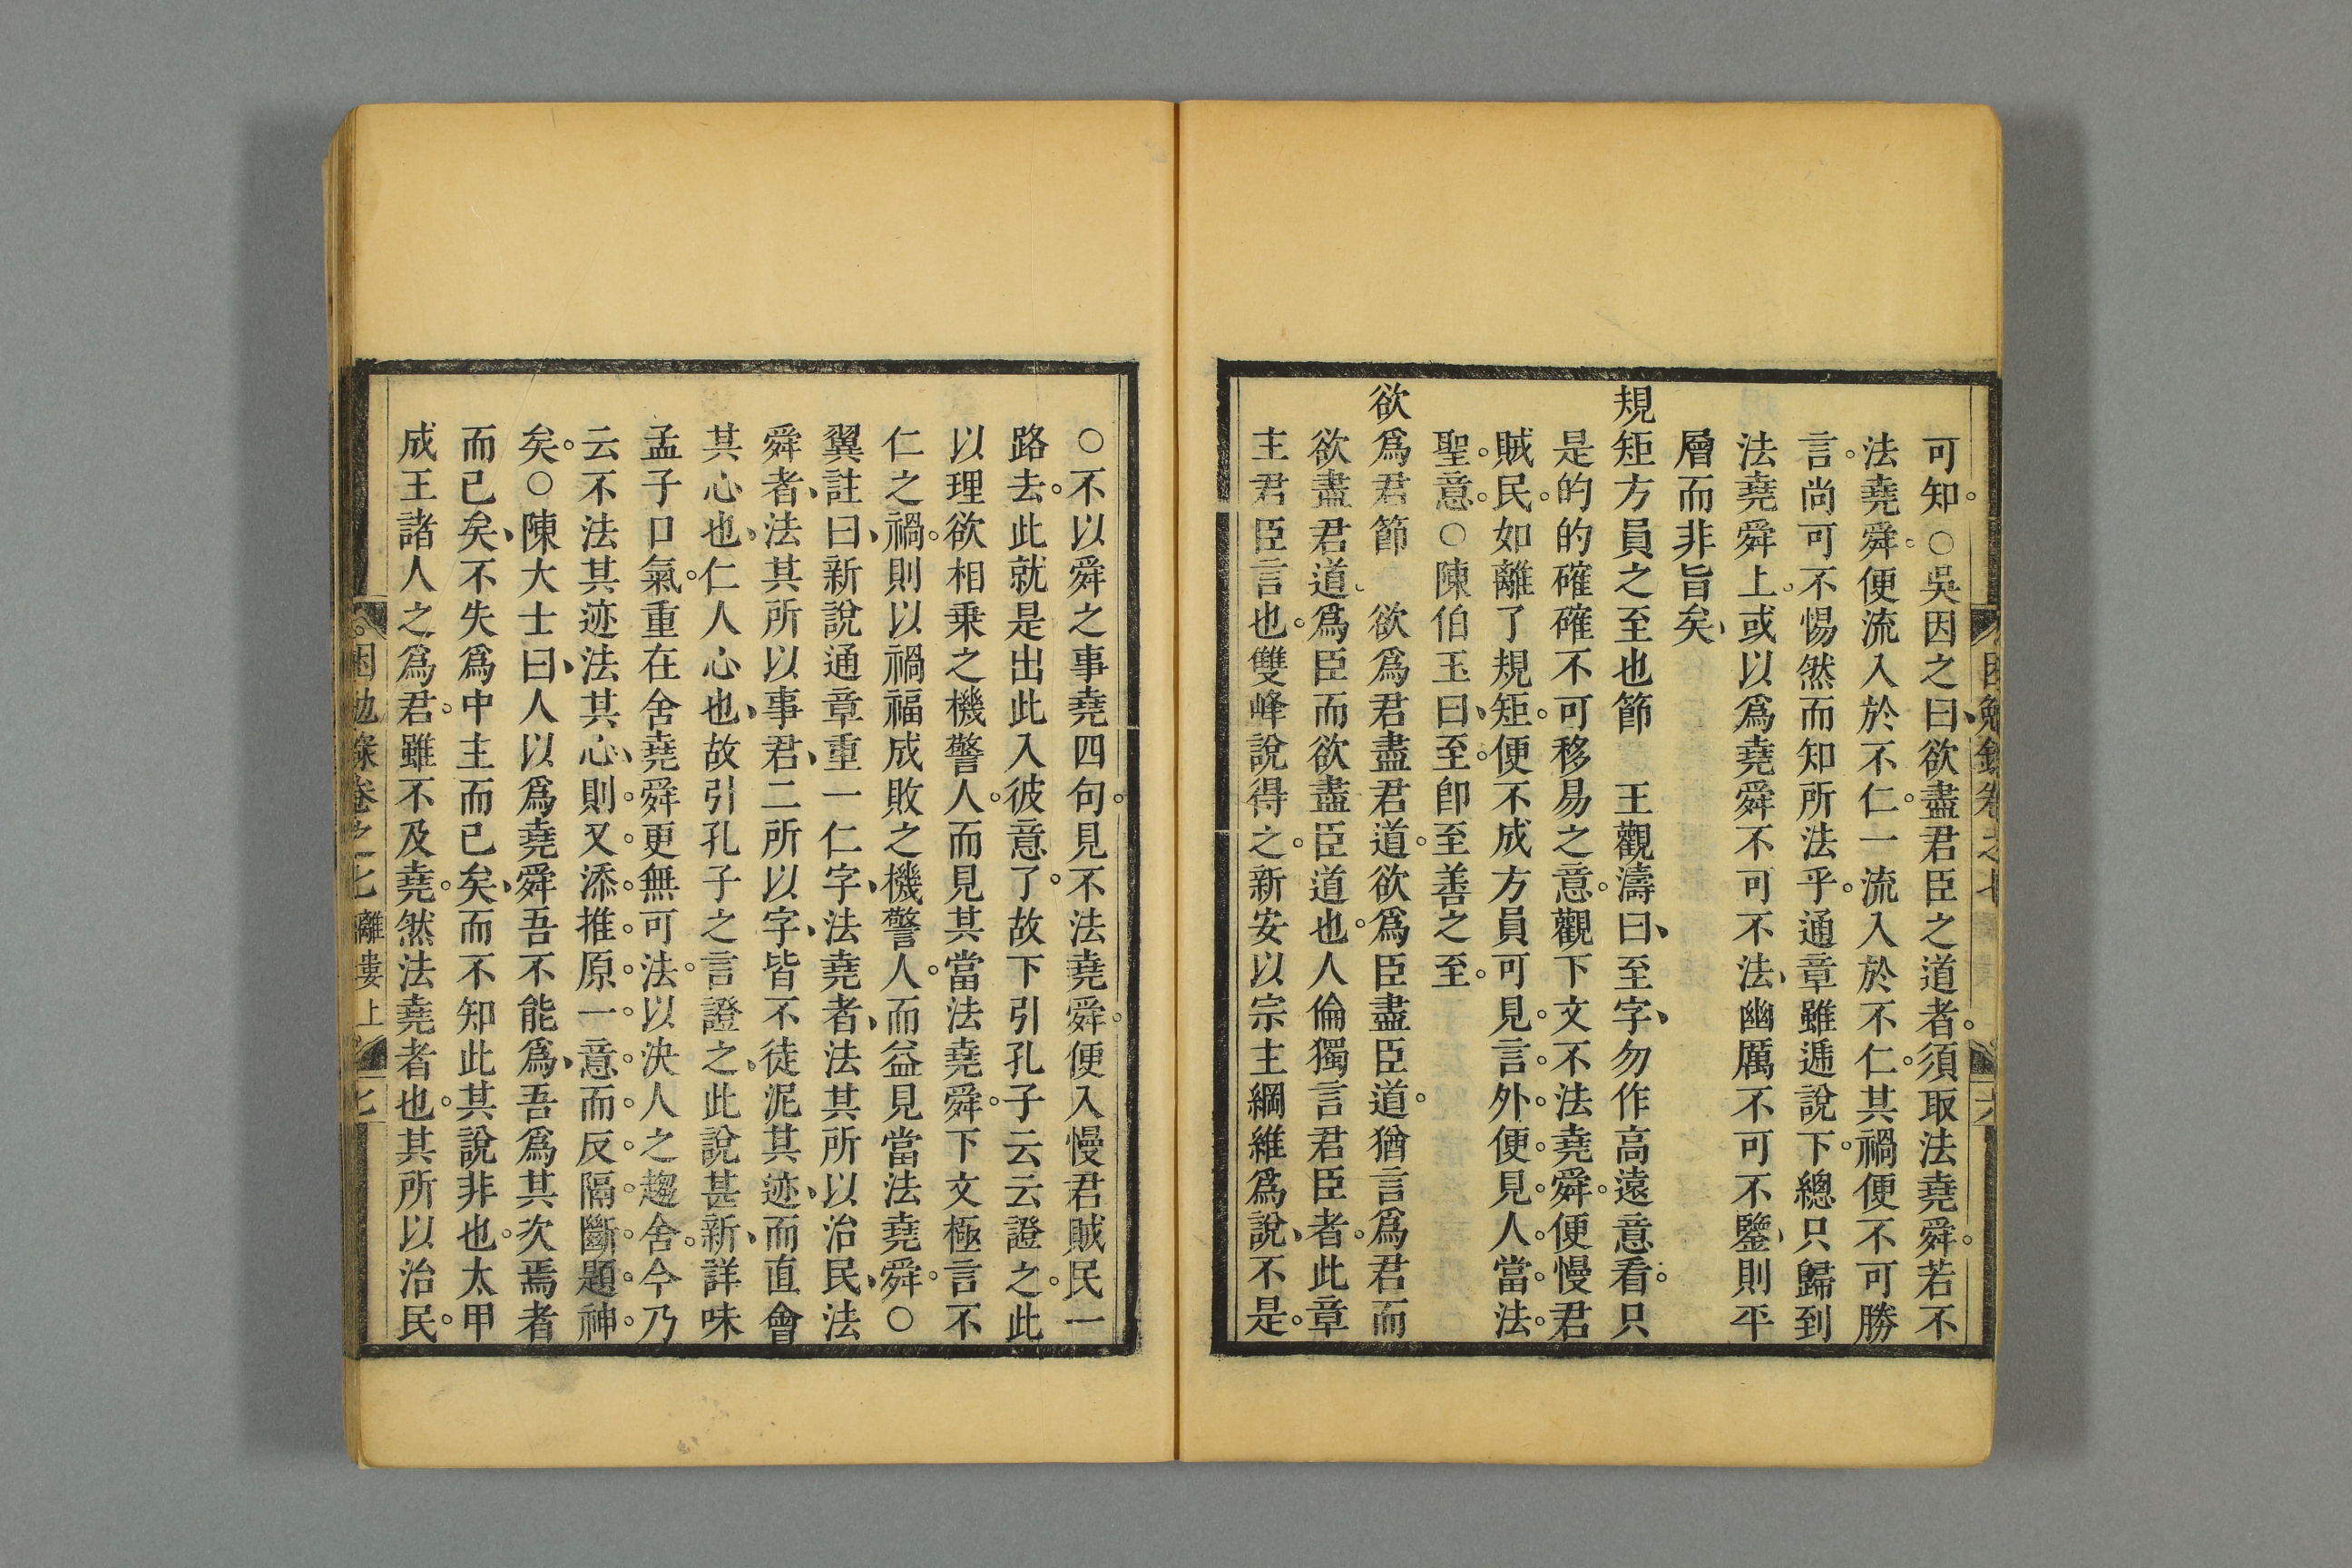 可知。○吳因之曰、欲盡君臣之道者。須取法堯舜。若不
法堯舜。便流入於不仁。一流入於不仁。其禍便不可勝
言。尚可不惕然而知所法乎。通章雖遞說下。總只歸到
法堯舜上。或以爲堯舜不可不法、幽厲不可不鑒、則平
層而非旨矣、
規矩方員之至也節　王觀濤曰、至字、勿作高遠意看。只
是的的確確不可移易之意。觀下文不法堯舜。便慢君
賊民。如離了規矩。便不成方員可見。言。外。便。見。人。當。法。
聖。意。○陳伯玉曰、至。卽至善之至。
欲爲君節　欲爲君盡君道。欲爲臣盡臣道。猶言爲君而
欲盡君道、爲臣而欲盡臣道也。人倫獨言君臣者。此章
主君臣言也。雙峰說得之。新安以宗主綱維爲說、不是。
○不以舜之事堯四句。見不法堯舜。便入慢君賊民一
路去。此就是出此入彼意了。故下引孔子云云證之。此
以理欲相乘之機警人。而見其當法堯舜。下文極言不
仁之禍。則以禍福成敗之機警人。而益見當法堯舜。○
翼註曰、新說通章重一仁字、法堯者、法其所以治民、法
舜者、法其所以事君、二所以字、皆不徒泥其迹、而直會
其心也、仁人心也、故引孔子之言證之、此說甚新、詳味
孟子口氣。重在舍堯舜更無可法。以決人之趨舍。今乃
云不法其迹法其心、則。又。添。推。原。一。意。而。反。隔。斷。題。神。
矣。○陳大士曰、人以爲堯舜吾不能爲、吾爲其次焉者
而已矣、不失爲中主而已矣、而不知此其說非也。太甲
成王諸人之爲君。雖不及堯。然法堯者也。其所以治民。
困勉錄卷之七　離婁上　七